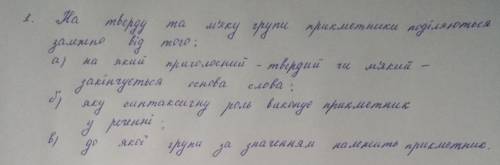 1. На тверду та м'яку групи прикметники поділяються
залежно від того;
а) на який приголосний - твердий чи м'який -
закінчується основа слова;
б) яку синтаксичну роль виконує прикметник
у реченні;
в) до якої групи за значенням належить прикметник.